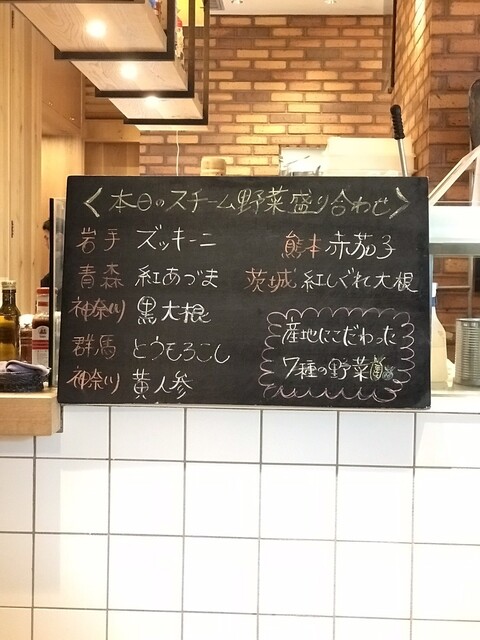 <本日のスチーム野菜盛り合わせ>
岩手 ズッキーニ
青森 紅あづま
神奈川 黒大根
群馬 とうもろこし
神奈川 黄人参
熊本 赤茄子
茨城 紅しぐれ大根
産地にこだわった
7種の野菜